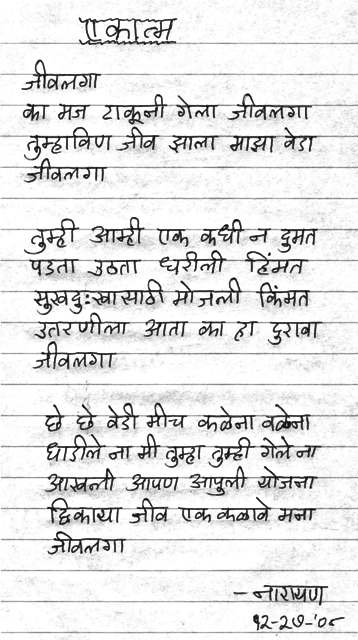 एकात्म
जीवलगा
का मज टाकूनी गेला जीवलगा
तुम्हाविण जीव झाला माझा वेडा
जीवलगा
तुम्ही आम्ही एक कधी न दुमत
पडता उठता धरीली हिंमत
सुखदुःखासाठी मोजली किंमत
उतरणीला आता का हा दुरावा
जीवलगा
छे छे वेडी मीच कळेना वळेना
धाडीले ना मी तुम्हा तुम्ही गेले ना
आखली आपण आपुली योजना
द्विकाया जीव एक कळावे मना
जीवलगा
–नारायण
१२-२७-'०८